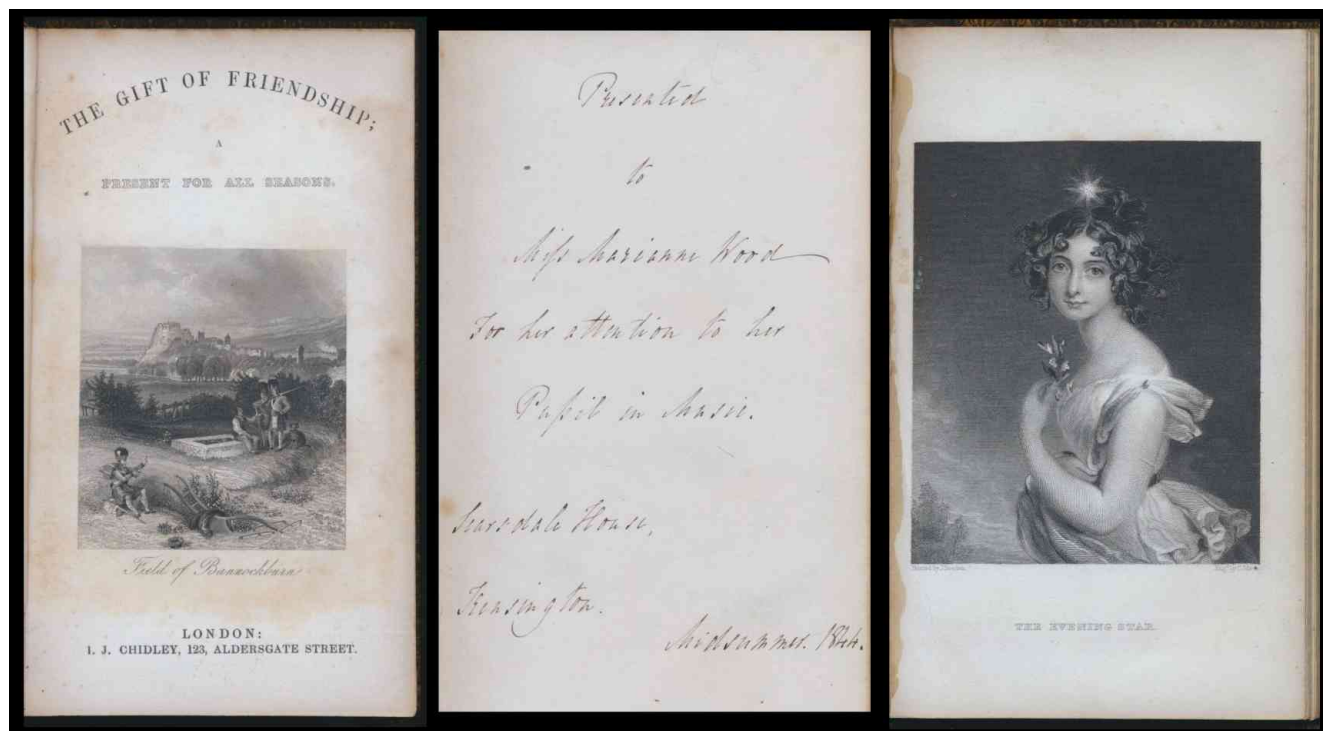 THE GIFT OF FRIENDSHIP;
A
PRESENT FOR ALL SEASONS.
Field of Bannockburn
LONDON:
I. J. CHIDLEY, 123, ALDERSGATE STREET.
Presented
to
Miſs Marianne Wood
For her attention to her
Pupil in Music.
Scarsdale House,
Kensington.
Midsummer. 1844.
Painted by
THE EVENING STAR.